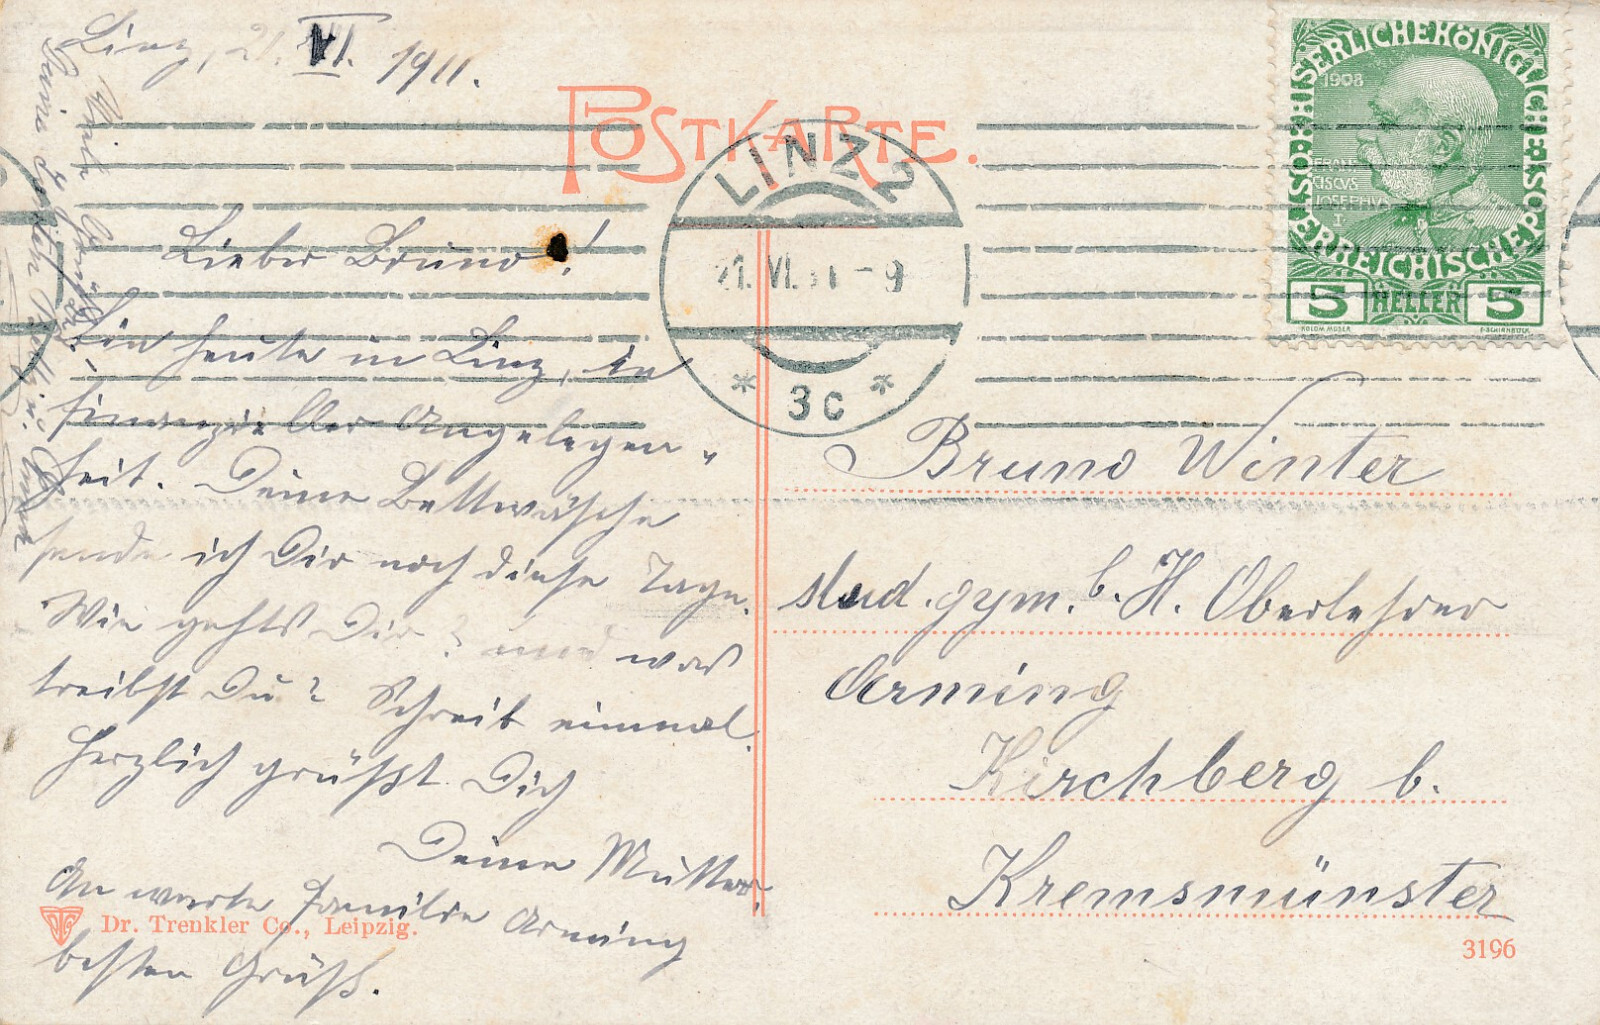 Linz, 21. VI. 1911.
POSTKARTE.
LINZ 2
21. VI. 11 - 9
* 3c *
KAISERLICHE KÖNIGLICHE ÖSTERREICHISCHE POST
1908
FRAN
CISCVS
JOSEPHVS
I.
5 HELLER 5
KOLOM. MOSER
F. SCHIRNBÖCK
Lieber Bruno!
Bin heute in Linz, in
finanzieller Angelegen-
heit. Deine Bettwäsche
sende ich Dir noch diese Tage.
Wie gehts Dir? und was
treibst Du? Schreib einmal.
Herzlich grüßt Dich
Deine Mutter.
An werte Familie Arming
besten Gruß.
Viele Grüße
Deine
Bruno Winter
stud. gym. b. H. Oberlehrer
Arming
Kirchberg b.
Kremsmünster
Dr. Trenkler Co., Leipzig.
3196